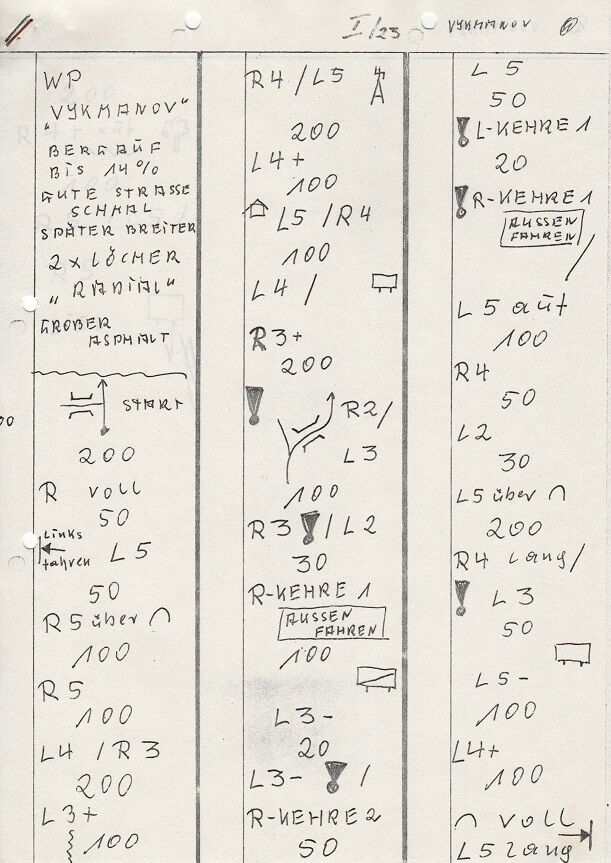 I/23 VYKMANOV
WP
"VYKMANOV"
BERGAUF
BIS 14%
GUTE STRASSE
SCHMAL
SPÄTER BREITER
2x LÖCHER
"RADIAL"
GROBER
ASPHALT
START
200
R voll
50
Links
fahren L5
50
R5 über ∩
100
R5
100
L4 / R3
200
L3+
100
R4 / L5
200
L4+
100
L5 / R4
100
L4 /
R3+
200
! R2/
L3
100
R3 ! / L2
30
R-KEHRE 1
AUSSEN
FAHREN
100
L3-
20
L3- ! /
R-KEHRE 2
50
L5
50
! L-KEHRE 1
20
! R-KEHRE 1
AUSSEN
FAHREN
/
L5 auf
100
R4
50
L2
30
L5 über ∩
200
R4 lang /
! L3
50
L5-
100
L4+
100
∩ voll
L5 lang